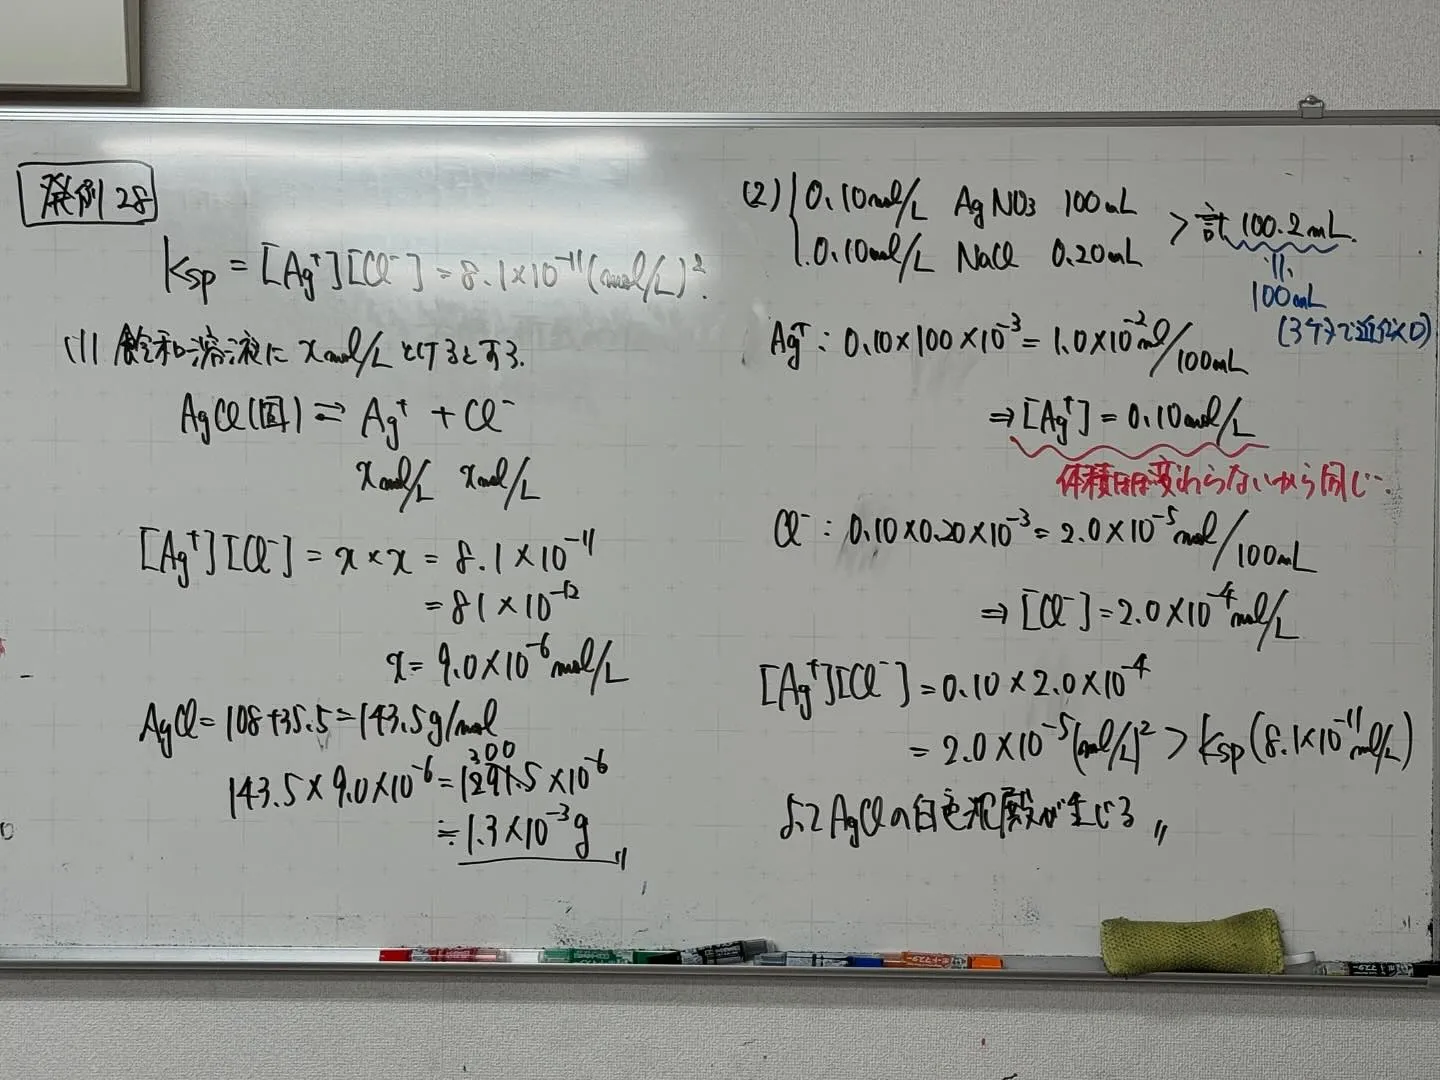 発例 28
Ksp = [Ag⁺][Cl⁻] = 8.1×10⁻¹¹(mol/L)².
(1) 飽和溶液に x mol/L とけるとする.
AgCl(固) ⇄ Ag⁺ + Cl⁻
x mol/L x mol/L
[Ag⁺][Cl⁻] = x × x = 8.1×10⁻¹¹
= 81×10⁻¹²
x = 9.0×10⁻⁶ mol/L
AgCl = 108+35.5 = 143.5g/mol
300
143.5×9.0×10⁻⁶ = 1291.5×10⁻⁶
≒ 1.3×10⁻³g
(2) 0.10mol/L AgNO₃ 100mL
0.10mol/L NaCl 0.20mL
> 計 100.2mL.
100mL
(3ケタで近似×0)
Ag⁺: 0.10×100×10⁻³ = 1.0×10⁻²mol/100mL
⇒ [Ag⁺] = 0.10mol/L
体積ほぼ変わらないから同じ.
Cl⁻: 0.10×0.20×10⁻³ = 2.0×10⁻⁵mol/100mL
⇒ [Cl⁻] = 2.0×10⁻⁴mol/L
[Ag⁺][Cl⁻] = 0.10×2.0×10⁻⁴
= 2.0×10⁻⁵(mol/L)² > Ksp(8.1×10⁻¹¹mol/L)
よって AgClの白色沈殿が生じる